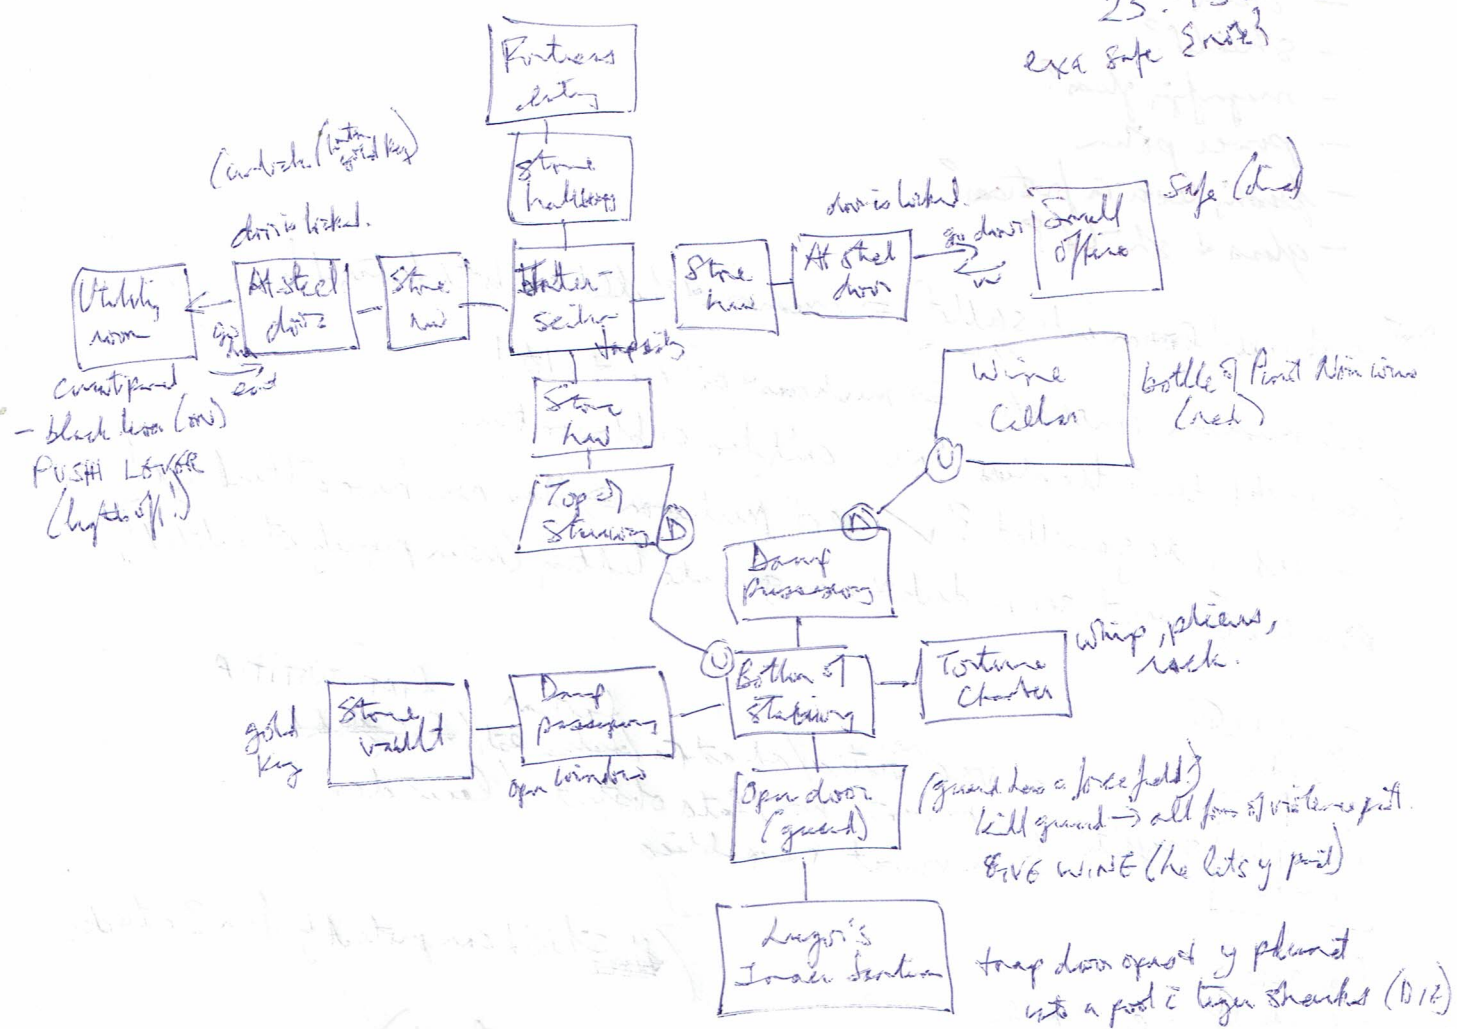 exa safe {note}
Fortress
entry
Stone
hallway
(unlock
gold key)
door is locked.
door is locked.
Safe (closed)
Utility
room
At steel
door
Stone
hall
Inter-
section
Stone
hall
At steel
door
go door
Small
office
current panel
- black lever (on)
PUSH LEVER
(lights off!)
Stone
hall
Wine
Cellar
bottle of Pinot Noir wine
(red)
Top of
Stairway
D
U
D
Damp
passageway
U
Bottom of
Stairway
Torture
Chamber
whip, pliers,
rack.
gold
key
Stone
vault
Damp
passageway
open window
Open door
(guard)
(guard has a force field!)
kill guard → all forms of violence
GIVE WINE (he lets y past)
Inner Sanctum
trap door opens & y plummet
into a pool c tiger sharks (DIE)